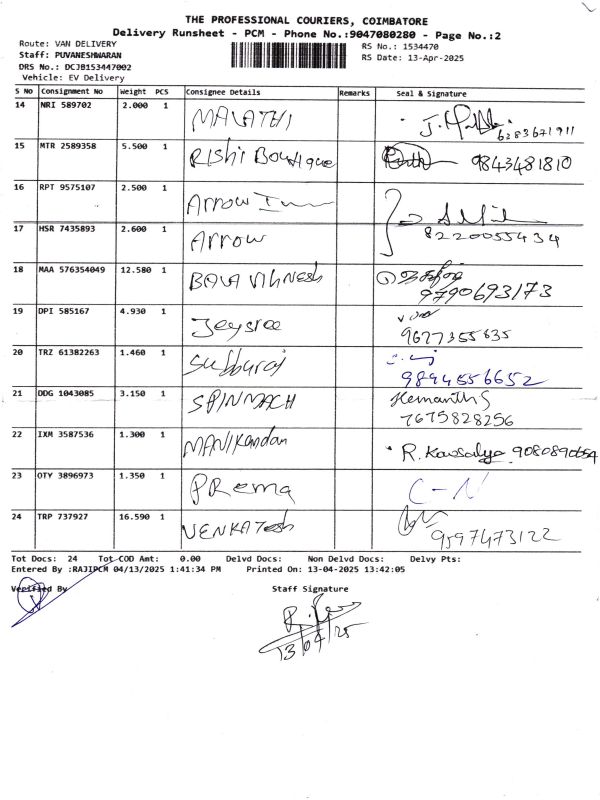 THE PROFESSIONAL COURIERS, COIMBATORE
Delivery Runsheet - PCM - Phone No.:9047080280 - Page No.:2
Route: VAN DELIVERY RS No.: 1534470
Staff: PUVANESHWARAN RS Date: 13-Apr-2025
DRS No.: DCJB153447002
Vehicle: EV Delivery
S No Consignment No Weight PCS Consignee Details Remarks Seal & Signature
14 NRI 589702 2.000 1 MALATHI 6283671911
15 MTR 2589358 5.500 1 RIShi Boutique 9843481810
16 RPT 9575107 2.500 1 Arrow
17 HSR 7435893 2.600 1 Arrow 8220055434
18 MAA 576354049 12.580 1 BALA VIGNESh 9790693173
19 DPI 585167 4.930 1 Jeysree 9677355835
20 TRZ 61382263 1.460 1 Subburaj 9894556652
21 DDG 1043085 3.150 1 SPINMACH Hemanth S
7675828256
22 IXM 3587536 1.300 1 MANIKandan R. Kowsalya 9080890654
23 OTY 3896973 1.350 1 PRema C-N
24 TRP 737927 16.590 1 VENKATesh 9597473122
Tot Docs: 24 Tot COD Amt: 0.00 Delvd Docs: Non Delvd Docs: Delvy Pts:
Entered By :RAJIPCM 04/13/2025 1:41:34 PM Printed On: 13-04-2025 13:42:05
Verified By Staff Signature
13/04/25